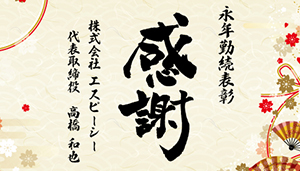 永年勤続表彰
感謝
株式会社 エスピーシー
代表取締役 高橋 和也